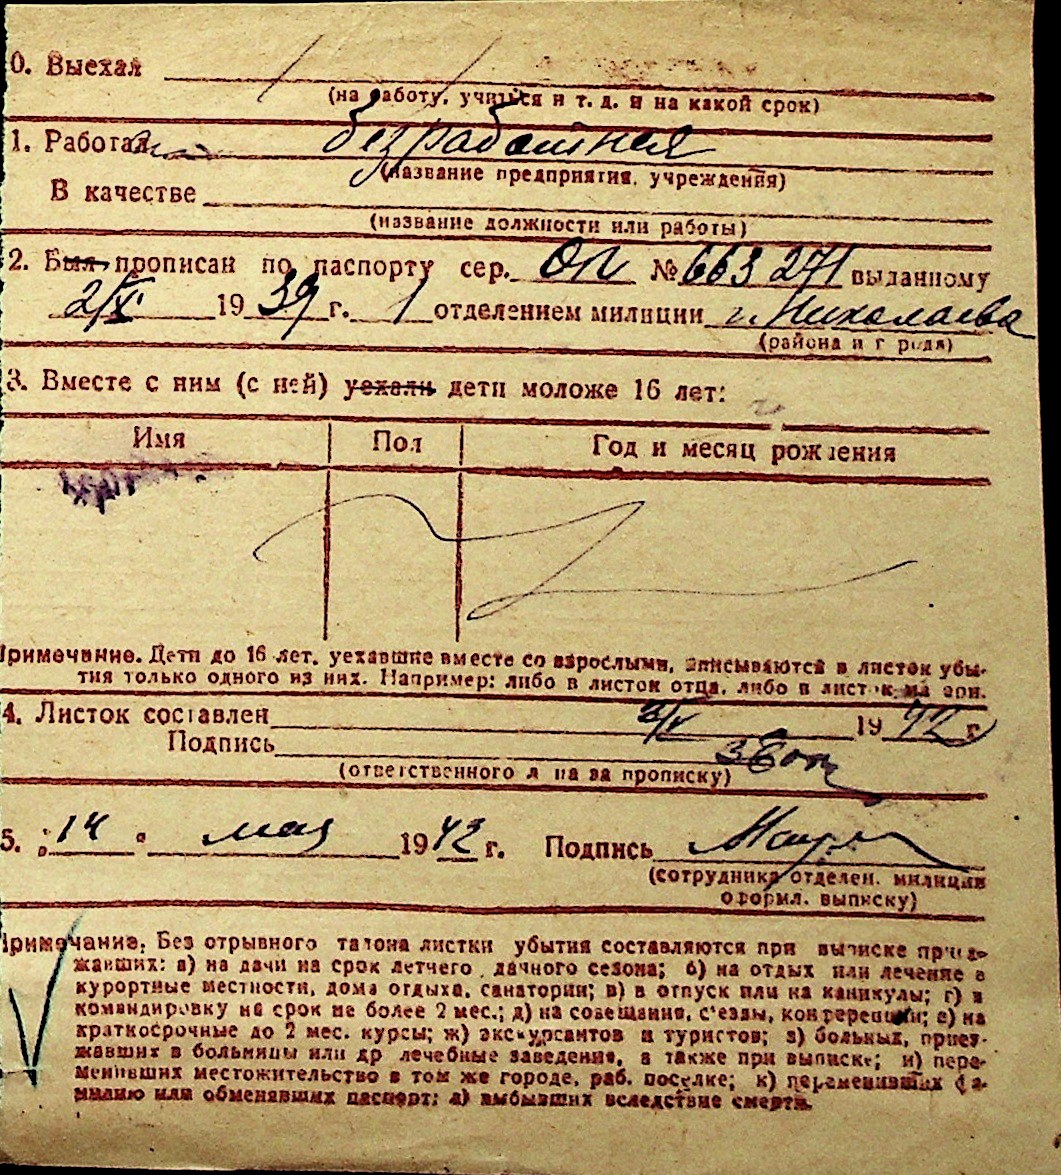 0. Выехал
(на работу, учиться и т. д. и на какой срок)
1. Работал безработная
(название предприятия, учреждения)
В качестве
(название должности или работы)
2. Был прописан по паспорту сер. ОП № 663 271 выданному
2/XI 1939 г. 1 отделением милиции г. Николаева
(района и г рода)
3. Вместе с ним (с ней) уехали дети моложе 16 лет:
Имя Пол Год и месяц рождения
Примечание. Дети до 16 лет, уехавшие вместе со взрослыми, записываются в листок убы-
тия только одного из них. Например: либо в листок отца, либо в листок ма ери.
4. Листок составлен 1942 г.
Подпись
(ответственного л ца за прописку)
5. "14" мая 1942 г. Подпись
(сотрудника отделен. милиции
оформ. выписку)
Примечание. Без отрывного талона листки убытия составляются при выписке приез-
жавших: а) на дачи на срок летнего дачного сезона; б) на отдых или лечение в
курортные местности, дома отдыха, санатории; в) в отпуск или на каникулы; г) в
командировку на срок не более 2 мес.; д) на совещания, с'езды, конференции; е) на
краткосрочные до 2 мес. курсы; ж) экскурсантов и туристов; з) больных, приез-
жавших в больницы или др лечебные заведения, а также при выписке; и) пере-
менивших местожительство в том же городе, раб. поселке; к) переменивших фа-
милию или обменявших паспорт; л) выбывших вследствие смерти.